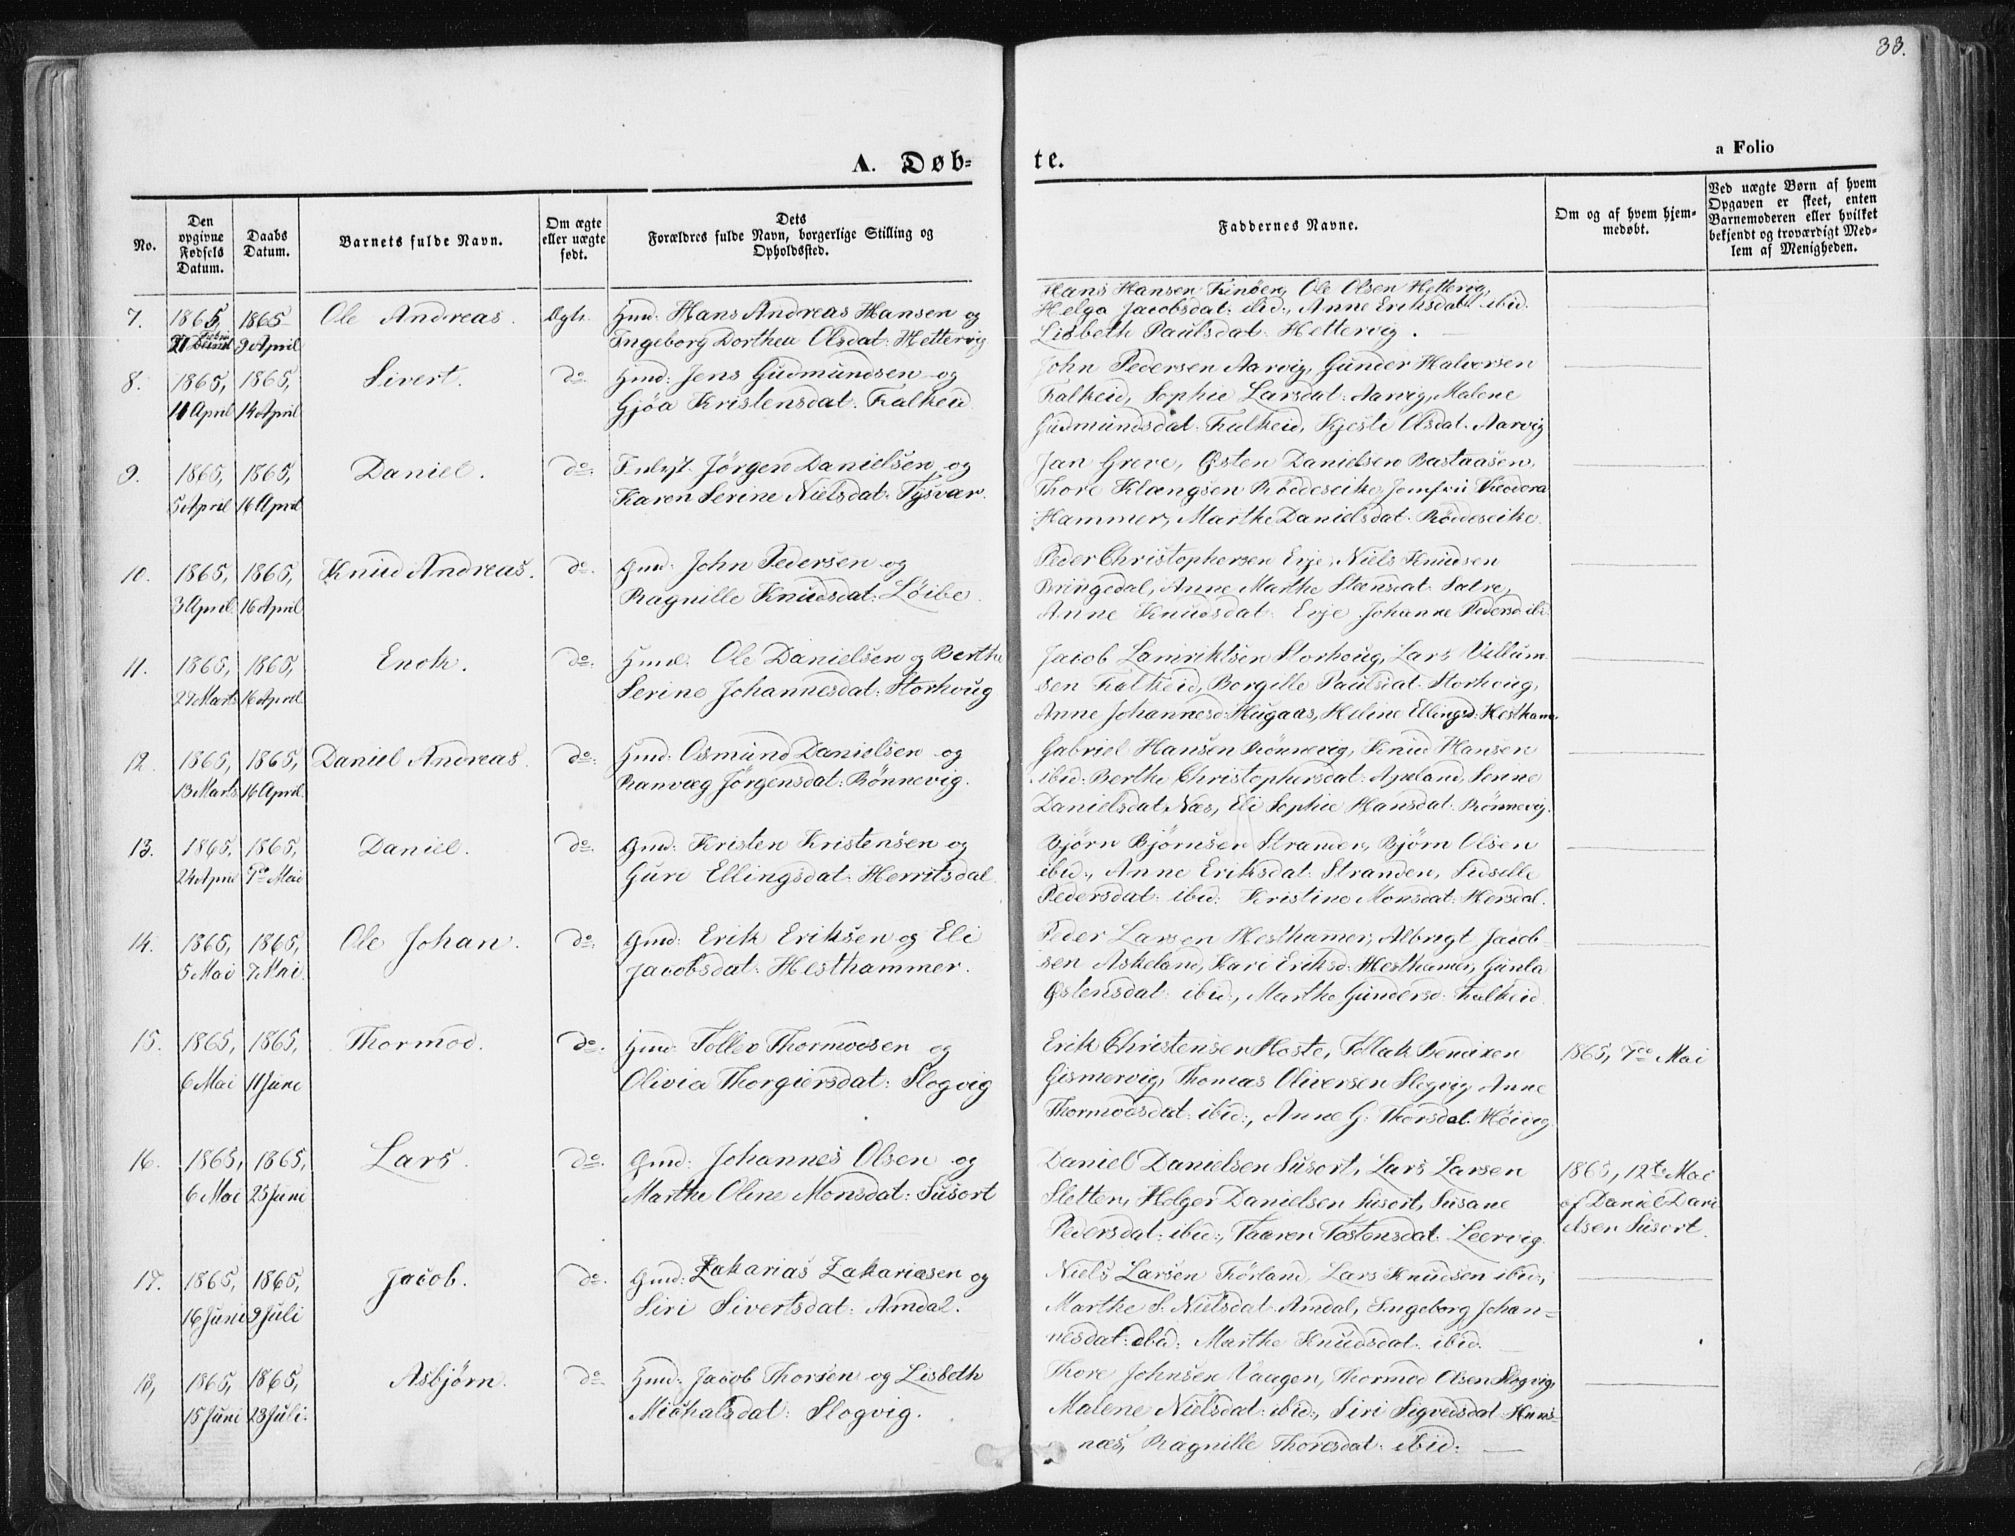 33.
A. Døb-
te.
a Folio
No.
Den opgivne Fødsels Datum.
Daabs Datum.
Barnets fulde Navn.
Om ægte eller uægte født.
Dets Forældres fulde Navn, borgerlige Stilling og Opholdssted.
Faddernes Navne.
Om og af hvem hjemmedøbt.
Ved uægte Børn af hvem Opgaven er skeet, enten Barnemoderen eller hvilket bekjendt og troværdigt Medlem af Menigheden.
7. 1865 21 1865 9 April
Ole Andreas. Ægte.
Hmd: Hans Andreas Hansen og
Ingeborg Dorthea Olsdat: Hettervig
Hans Hansen Ole Olsen Hettervig,
Helga Jacobsdat: ibid:, Anne Eriksdatt: ibid.
Lisbeth Paulsdat: Hettervig.
8. 1865, 11 April 1865, 14 April
Sivert. do
Hmd: Jens Gudmundsen og
Gjøa Kristensdat. Falkeid
John Pedersen Aarvig, Gunder Halvorsen
Falkeid, Sophie Larsdat: Aarvig, Malene
Gudmundsdat: Falkeid, Kjesti Olsdat. Aarvig
9. 1865, 5 April 1865, 16 April
Daniel. do:
Jørgen Danielsen og
Karen Serine Nielsdat: Tysvær.
Jan Greve, Østen Danielsen Bastaasen,
Thore Klængsen Rødeseike, Jomfru Theodora
Hammer, Marthe Danielsdat. Røddeseike.
10. 1865, 3 April 1865, 16 April
Knud Andreas. do:
Gmd: John Pedersen og
Ragnille Knudsdat: Løibe.
Peder Christophersen Erje, Niels Knudsen
Bringedal, Anne Marthe Stensdat: Satre,
Anne Knudsdat: Erje Johanne Pedersd ibi
11. 1865, 29 Marts 1865, 16 April
Enok. do:
Hmd: Ole Danielsen og Berthe
Serine Johannesdat: Storhoug
Jacob Lamriktsen Storhoug, Lars Villum-
sen Falkeid, Borgille Paulsdat: Storhoug,
Anne Johannesd: Hugaas, Heline Ellingsd: Hestham
12. 1865, 13 Marts 1865, 16 April
Daniel Andreas. do:
Hmd: Osmund Danielsen og
Ranvæg Jørgensdat: Rønnevig.
Gabriel Hansen Rønnevig, Knud Hansen
ibid: Berthe Christophersdat: Apeland, Serine
Danielsdat Næs, Eli Sophie Hansdat: Rønnevig.
13. 1865, 24 April 1865, 7de Mai
Daniel. do:
Gmd: Kristen Kristensen og
Guri Ellingsdat: Herritsdal.
Bjørn Bjørnsen Stranden, Bjørn Olsen
ibid:, Anne Eriksdat: Stranden, Sidselle
Pedersdat: ibid: Kristine Monsdat: Hersdal.
14. 1865, 5 Mai 1865, 7 Mai.
Ole Johan. do:
Gmd: Erik Eriksen og Eli
Jacobsdat: Hesthammer.
Peder Larsen Hesthamer, Albregt Jacob-
sen Askeland, Kari Eriksd: Hesthamer, Gunla
Østensdat: ibid:, Marthe Gundersd: Falkeid.
15. 1865, 6 Mai 1865, 11 Juni
Thormod. do.
Hmd: Tollev Thormodsen og
Olivia Thorgiersdat: Slogvig
Erik Christensen Sloste, Tollak Bendixen
Gismervig, Thomas Oliversen Slogvig, Anne
Thormodsdat: ibid:, Anne G. Thorsdat. Høivig.
1865, 7de Mai
16. 1865, 6 Mai 1865, 25 Juni
Lars. do:
Gmd: Johannes Olsen og
Marthe Oline Monsdat: Susort
Daniel Danielsen Susort, Lars Larsen
Sletten, Holger Danielsen Susort, Susane
Pedersdat: ibid:, Taaren Tostensdat. Leervig.
1865, 12te Mai
af Daniel Dani
elsen Susort.
17. 1865, 16 Juni 1865, 9 Juli
Jacob. do.
Gmd: Zakarias Zakariasen og
Siri Sivertsdat: Amdal.
Niels Larsen Førland, Lars Knudsen ibid:,
Marthe S. Nielsdat Amdal, Ingeborg Johan-
nesdat: ibid: Marthe Knudsdat: ibid.
18, 1865, 15 Juni 1865, 23 Juli.
Asbjørn. do
Hmd: Jacob Thorsen og Lisbeth
Michalsdat: Slogvig.
Thore Johnsen Vaagen, Thormod Olsen Slogvig,
Malene Nielsdat: ibid:, Siri Sigvedsdat: Hums-
næs, Ragnille Thoresdat: ibid: